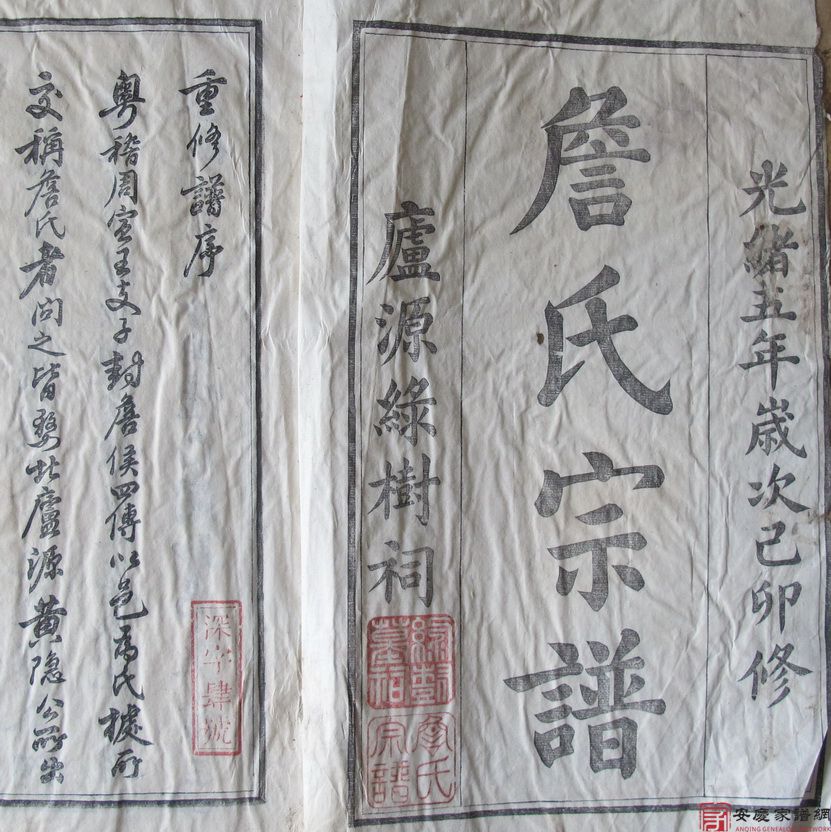 光緒五年歲次己卯修
詹氏宗譜
廬源綠樹祠
詹氏
宗譜
重修譜序
粵稽周宣王支子封詹侯四傳以邑為氏據所
交稱詹氏者問之皆婺北廬源黃隱公所出
深字肆號
安慶家譜網
ANQING GENEALOGY NETWORK